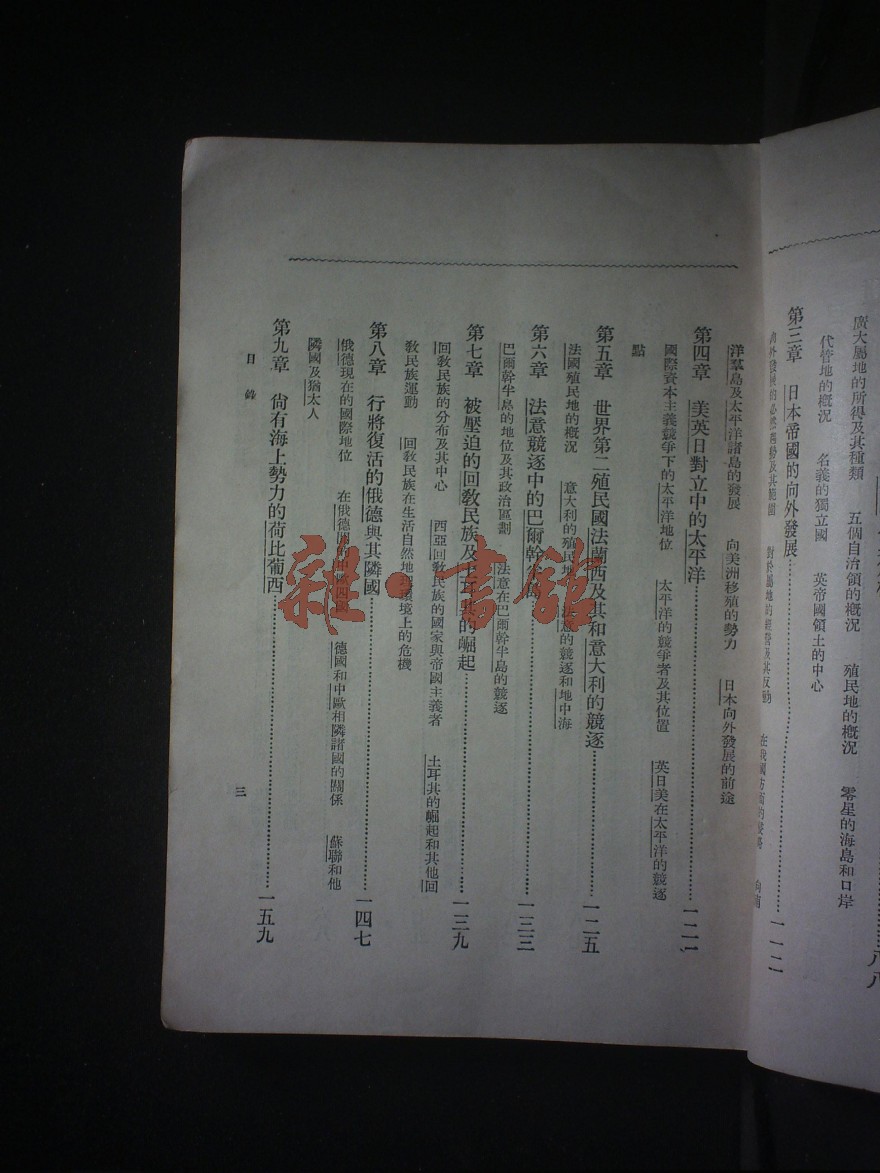 廣大屬地的所得及其種類　五個自治領的概況　殖民地的概況　零星的海島和口岸
八八
代管地的概況　名義的獨立國　英帝國領土的中心
第三章　日本帝國的向外發展……一一二
對於屬地的經營及其反動
洋羣島及太平洋諸島的發展　向美洲移殖的勢力　日本向外發展的前途
第四章　美英日對立中的太平洋……一二一
國際資本主義競爭下的太平洋地位　太平洋的競爭者及其位置　英日美在太平洋的競逐
點
第五章　世界第二殖民國法蘭西及其和意大利的競逐……一二五
法國殖民地的概況　意大利的殖民地　法意的競逐和地中海
第六章　法意競逐中的巴爾幹半島……一三三
巴爾幹半島的地位及其政治區劃　法意在巴爾幹半島的競逐
第七章　被壓迫的回教民族及土耳其的崛起……一三九
回教民族的分布及其中心　西亞回教民族的國家與帝國主義者　土耳其的崛起和其他回
教民族運動　回教民族在生活自然地理環境上的危機
第八章　行將復活的俄德與其隣國……一四七
俄德現在的國際地位　在俄德間的中歐四國　德國和中歐相隣諸國的關係　蘇聯和他
隣國及猶太人
第九章　尙有海上勢力的荷比葡西……一五九
目錄
三
雜·書館